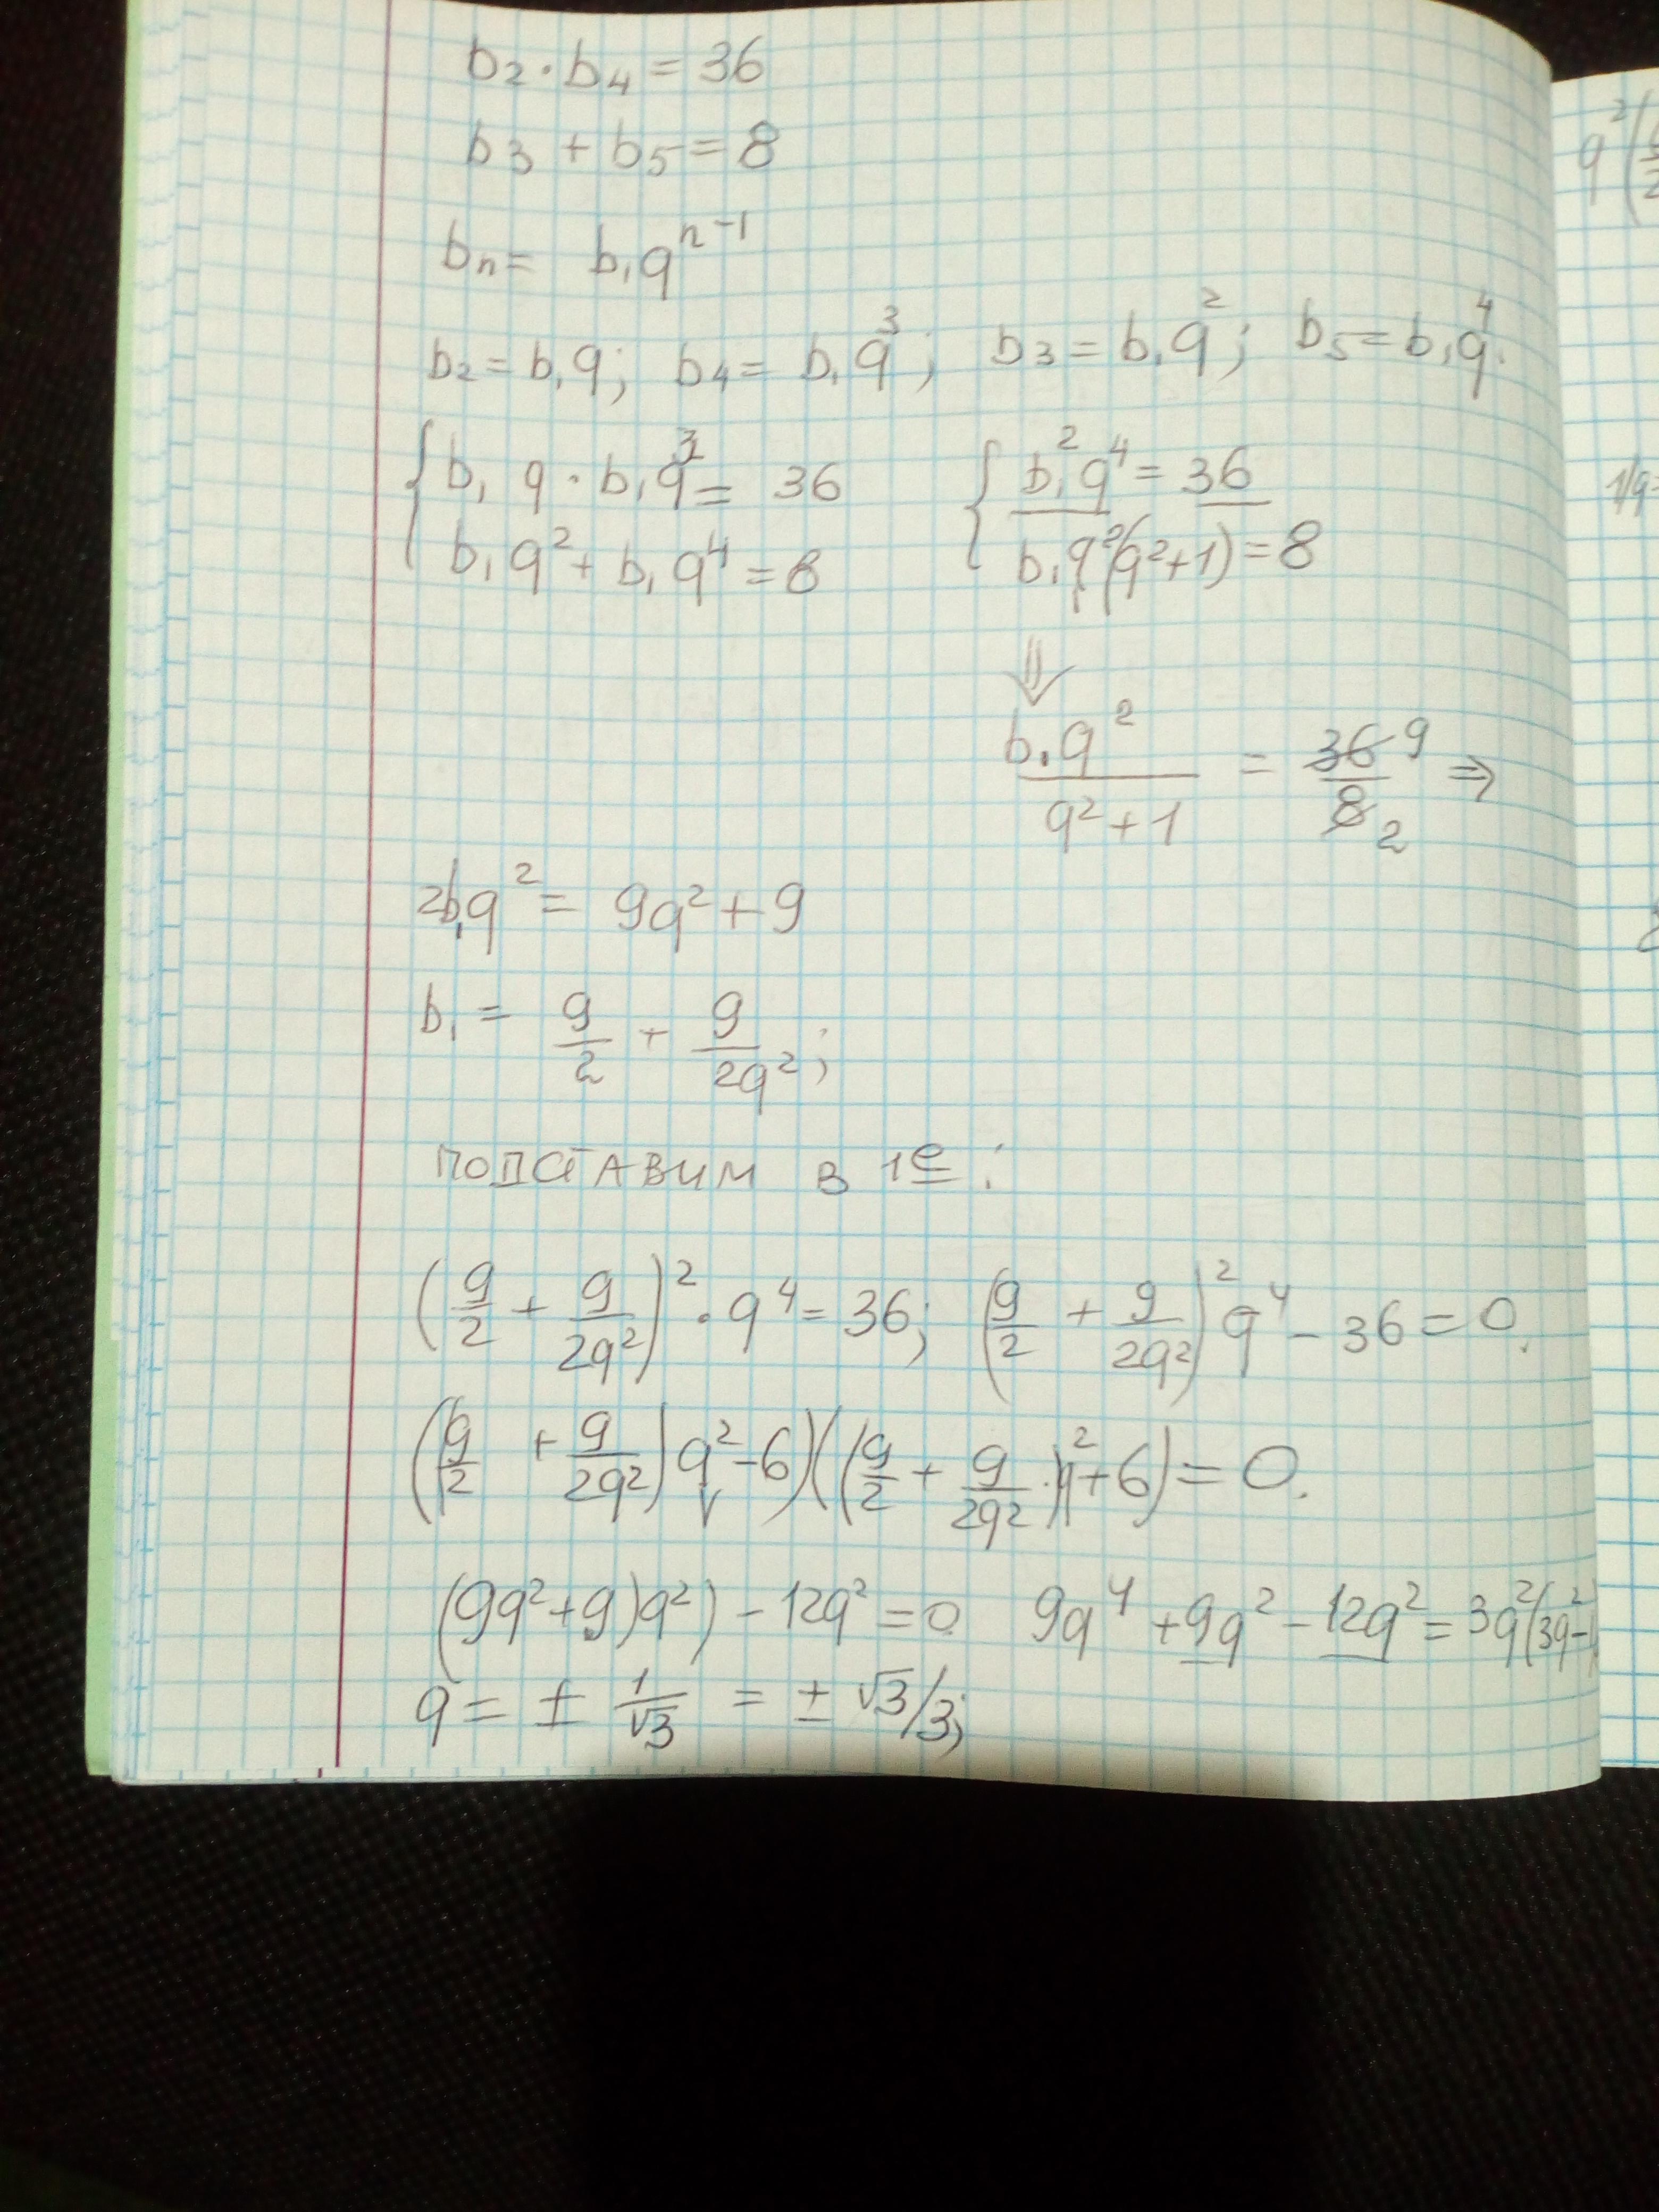 b₂·b₄ = 36
b₃ + b₅ = 8
bₙ = b₁qⁿ⁻¹
b₂ = b₁q; b₄ = b₁q³; b₃ = b₁q²; b₅ = b₁q⁴.
{ b₁ q · b₁q³ = 36 { b₁²q⁴ = 36
b₁q² + b₁q⁴ = 8 b₁q²(q²+1) = 8
⇓
b₁q²/(q²+1) = 36/8 9/2 ⇒
2b₁q² = 9q² + 9
b₁ = 9/2 + 9/2q²;
ПОДСТАВИМ В 1е:
(9/2 + 9/2q²)² · q⁴ = 36; (9/2 + 9/2q²)² q⁴ − 36 = 0.
(9/2 + 9/2q²) q² − 6)((9/2 + 9/2q²·)q² + 6) = 0.
(9q² + 9)q²) − 12q² = 0 9q⁴ + 9q² − 12q² = 3q²(3q² −
q = ± 1/√3 = ± √3/3;